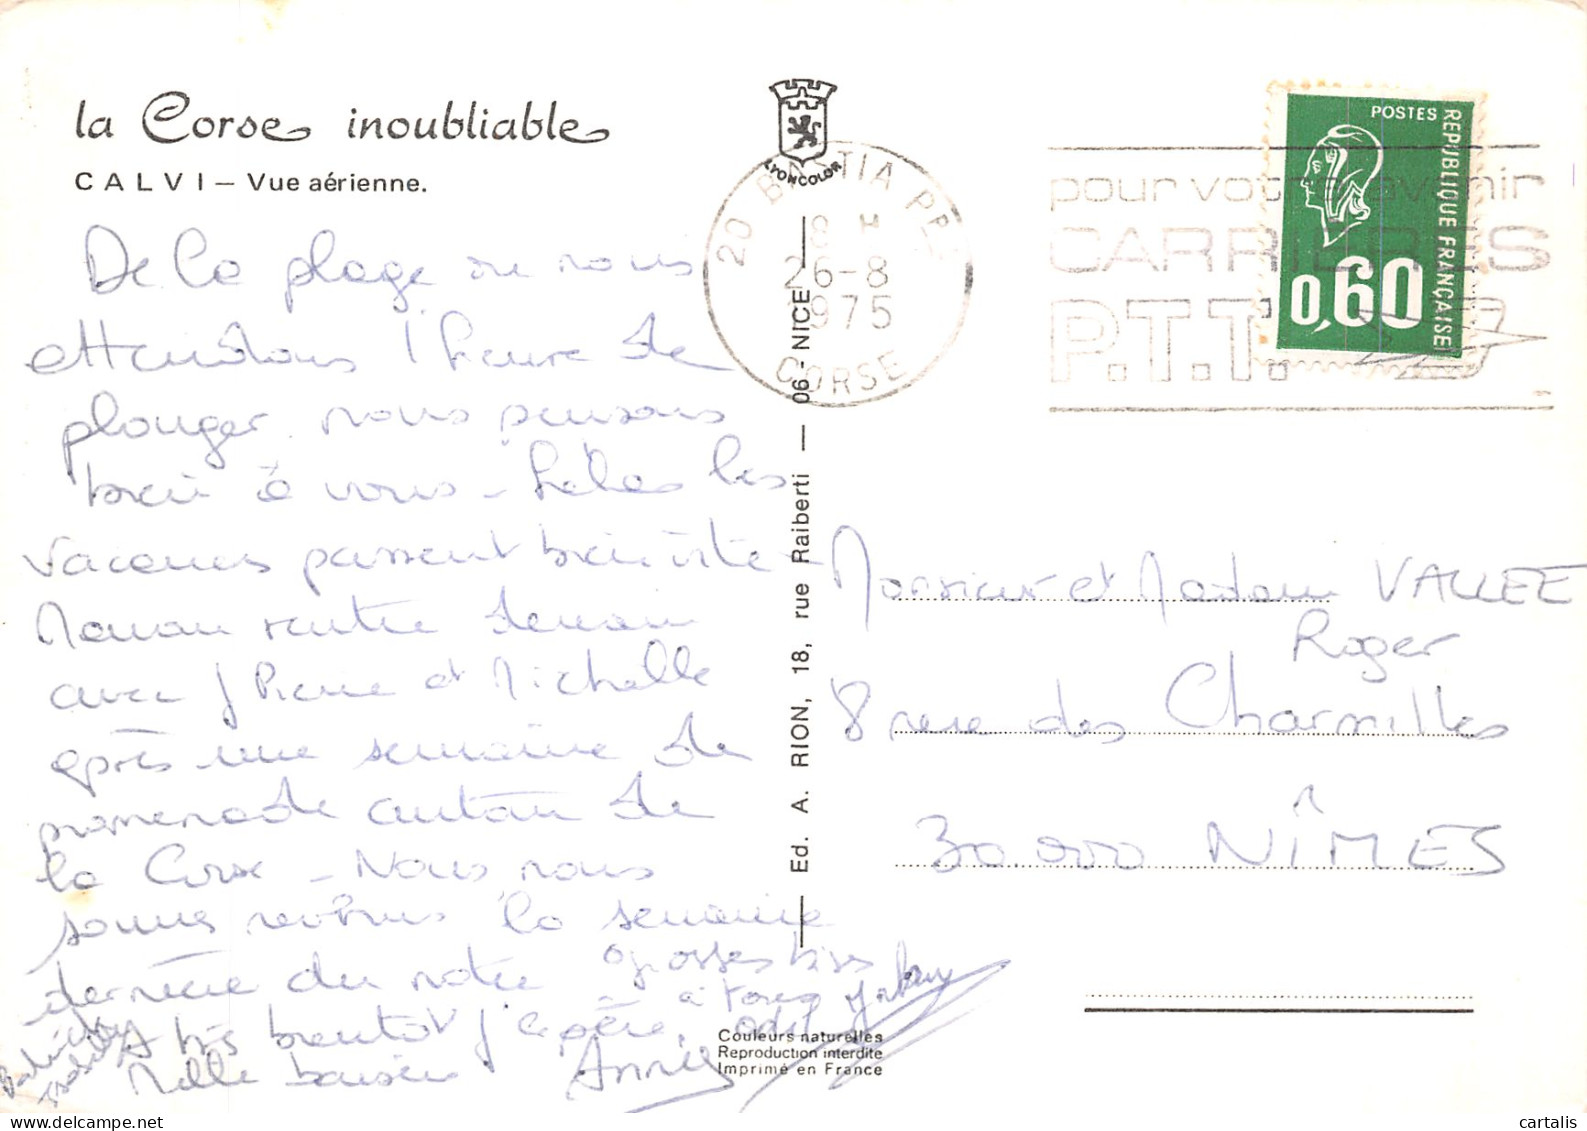 la Corse inoubliable
CALVI — Vue aérienne.
De la plage ou nous
attendons l'heure de
plonger nous pensons
bien à vous - hélas les
vacances passent bien vite -
Maman rentre demain
avec J Pierre et Michelle
après une semaine de
promenade autour de
la Corse - Nous nous
sommes revenus la semaine
dernière du notre
A très bientot j'espère,
Mille baisers
Annie
grosses bises
à tous
LYONCOLOR
20 BASTIA PPL
8 H
26-8
1975
CORSE
Ed. A. RION, 18, rue Raiberti — 06 - NICE
pour votre avenir
CARRIERES
P.T.T.
POSTES
REPUBLIQUE FRANÇAISE
0,60
Monsieur et Madame VALLEE
Roger
8 rue des Charmilles
30.000 NÎMES
Couleurs naturelles
Reproduction interdite
Imprimé en France
cartalis